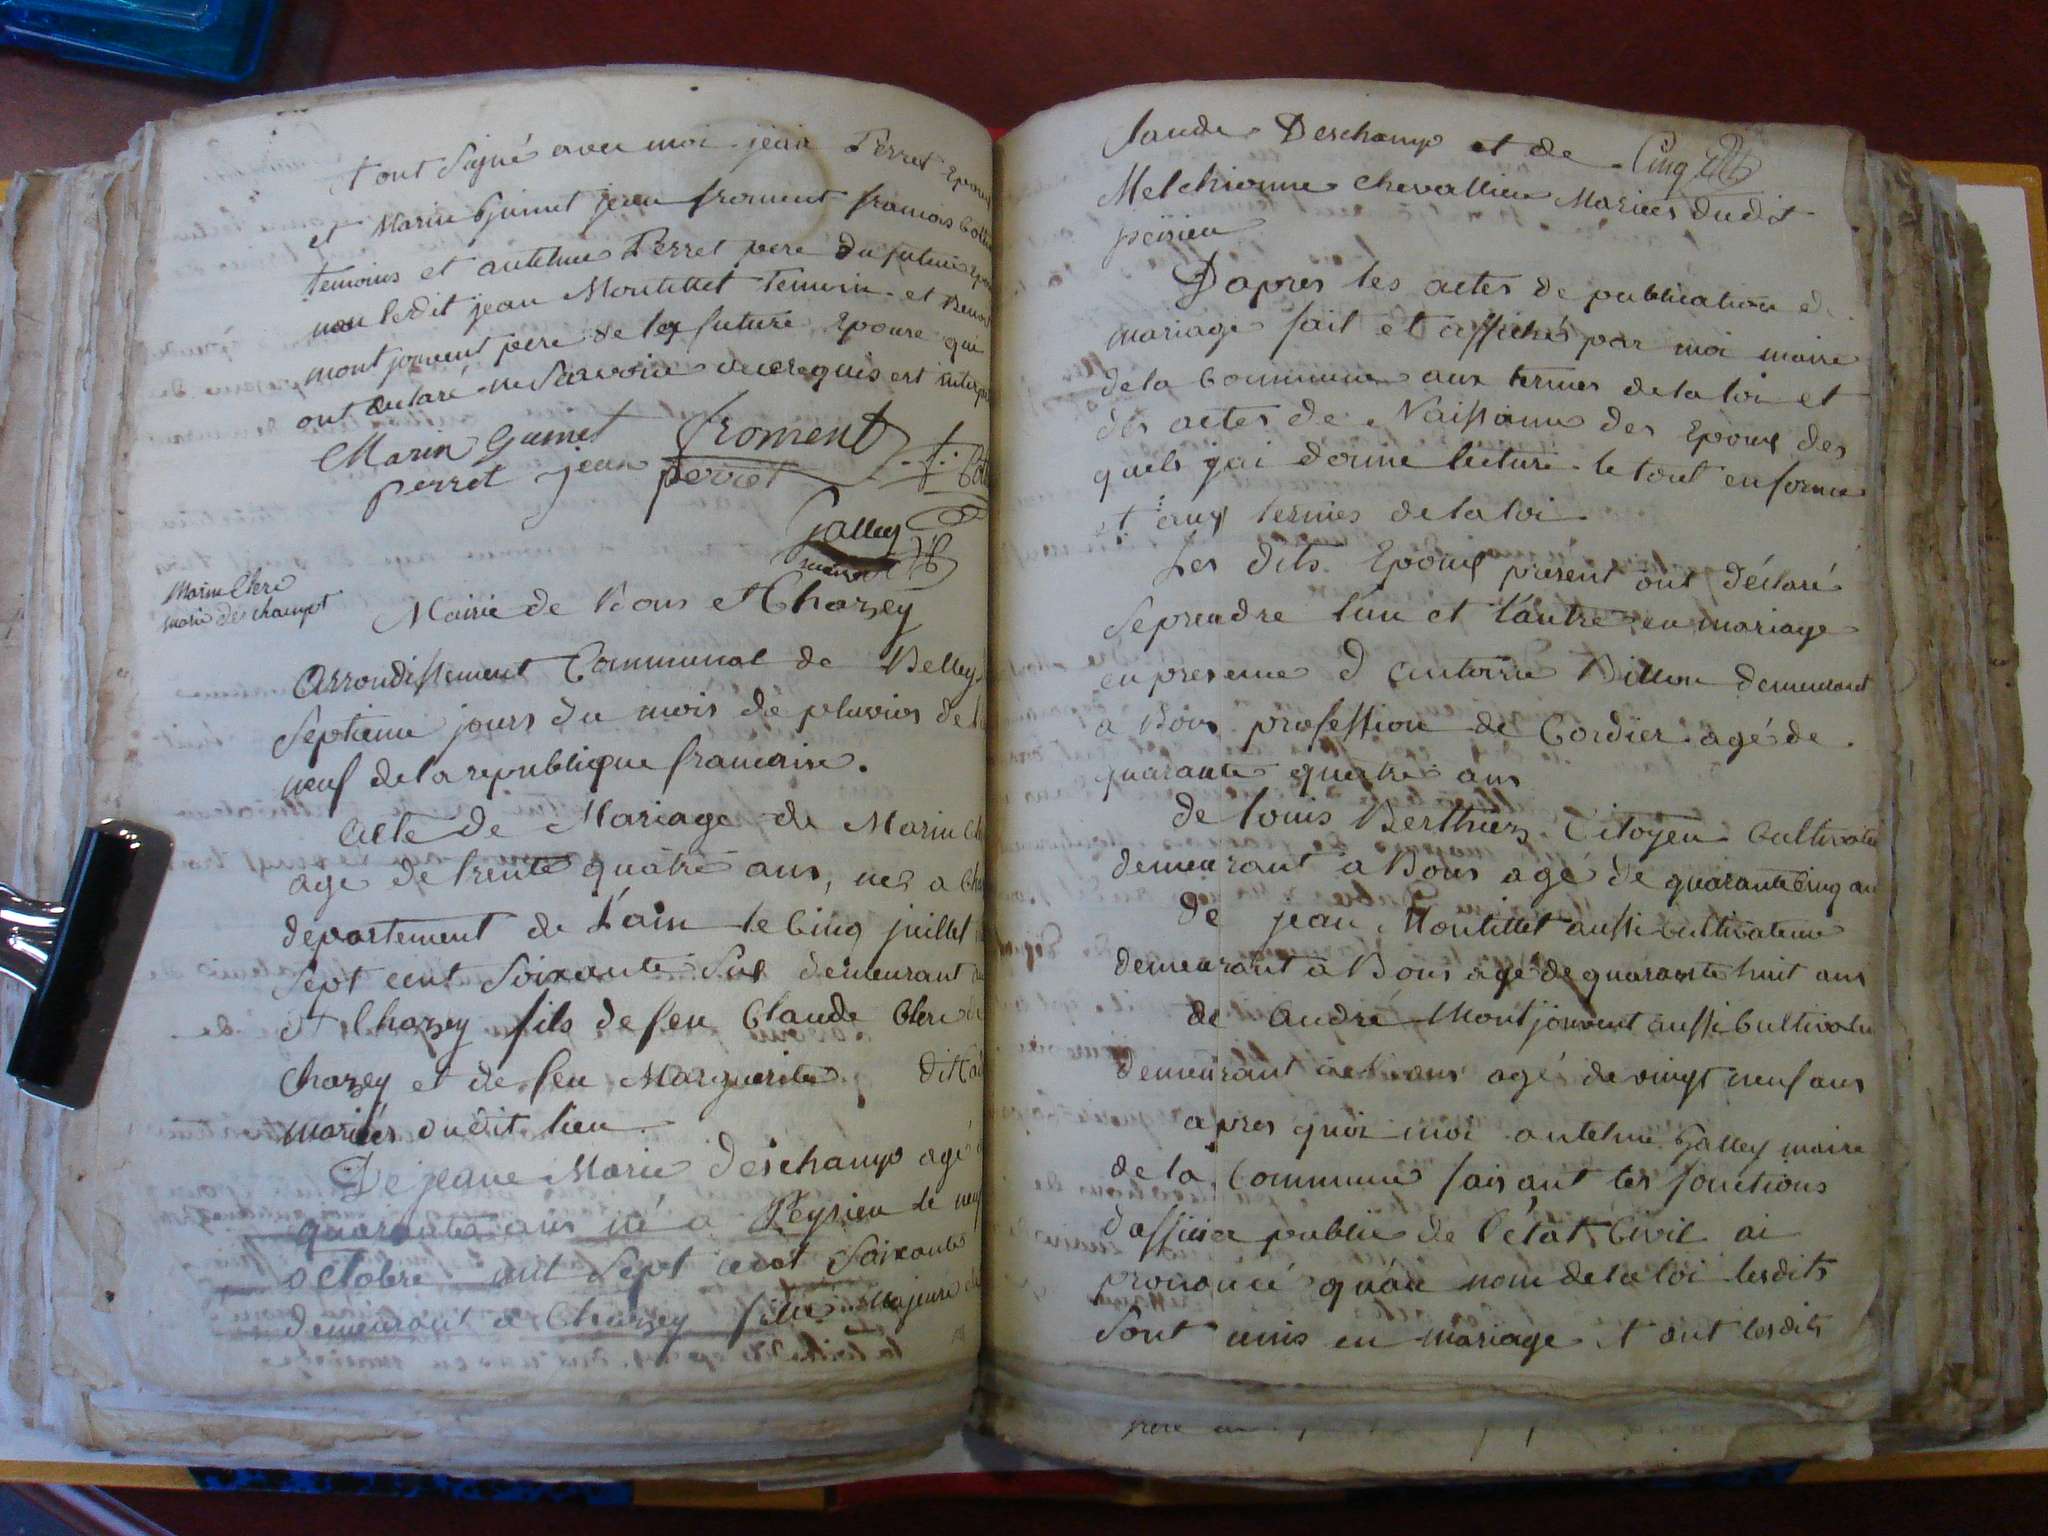 et ont Signé avec moi jean Perret Epoux
et Marin Guinet jean froment francois
temoins et antelme Perret pere du futur
non lesdit jean Montillet temoin et Benoit
montjouvent pere de la future Epouse qui
ont declaré ne Savoir de ce requis est
Marin Guinet froment
perret jean perret
Galley
maire
Marin Clerc
marie deschampt
Mairie de Bons et Chazey
Arrondissement Communal de Belley
Septieme jours du mois de pluvios de
neuf de la republique francaise.
acte de Mariage de Marin
age de trente quatre ans, nes a
departement de L'ain le Cinq juillet
Sept cent Soixante Six demeurant
et Chazey fils de feu Claude Clerc
Chazey et de feu Marguerite dit
mariés dudit lieu
De jeane Marie deschamp agé
quarante ans né a Peysieu le neuf
octobre mil Sept cent Soixante
demeurant a Chazey fille Majeure
Claude Deschamp et de Cinq
Melchionne Chevallier Mariés dudit
peisieu
D'apres les actes de publication de
mariage fait et affiché par moi maire
de la Commune aux termes de la loi et
des actes de Naissance des Epoux des
quels j'ai donné lecture le tout en forme
et aux termes de la loi
Les dits Epoux présent ont déclaré
Se prendre l'un et l'autre en mariage
en presence d'antoine Billion demeurant
a Bons profession de Cordier agé de
quarante quatre ans
de louis Berthier Citoyen Cultivateu
demeurant a Bons agé de quarante Cinq an
de jean Montillet aussi cultivateur
demeurant a Bons agé de quarante huit ans
de andré Montjouvent aussi Cultivateu
demeurant a Bons agé de vingt neuf ans
apres quoi moi antelme Galley maire
de la Commune faisant les fonctions
d'officier public de l'état Civil ai
prononcé qu'au nom de la loi lesdits
Sont unis en mariage et ont lesdits
pere